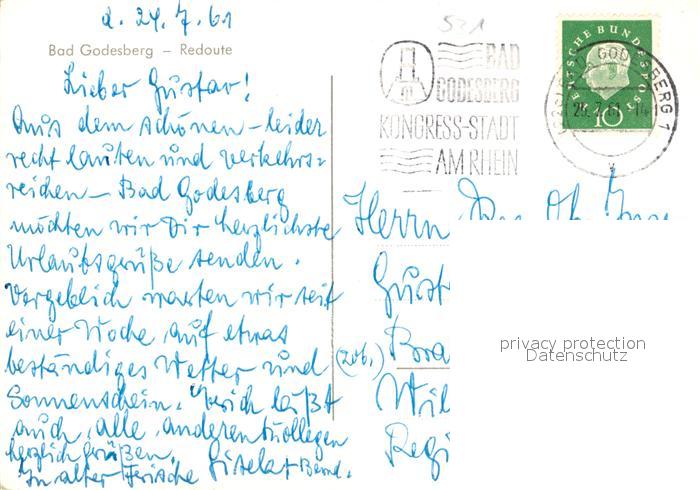 d. 24.7.61
Bad Godesberg – Redoute
Lieber Gustav!
Aus dem schönen – leider
recht lauten und verkehrs=
reichen – Bad Godesberg
möchten wir Dir herzlichste
Urlaubsgrüße senden.
Vergeblich warten wir seit
einer Woche auf etwas
beständiges Wetter und
Sonnenschein. läßt
auch alle anderen Kollegen
herzlich grüßen.
In alter Frische Gisela + Bernd.
531
BAD
GODESBERG
KONGRESS-STADT
AM RHEIN
DEUTSCHE BUNDESPOST
10
BAD GODESBERG 1
26.7.61-14
Herrn
Gust
(20b.) Bra
Wil
Regi
privacy protection
Datenschutz